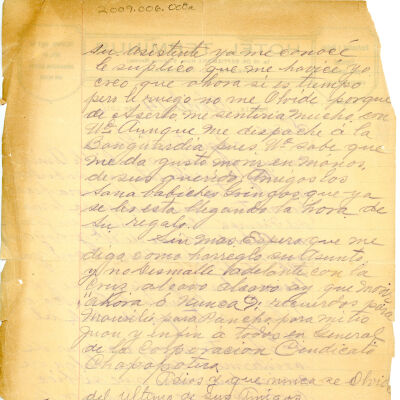 2009.006.001a
su asistente ya me conoce
le suplico que me havice yo
creo que ahora si es tiempo
pero le ruego no me Olvide porque
de Aserlo me sentiria mucho, con
Ud. Aunque me despache á la
Banguardia pues, Ud. sabe que
me da gusto morir en manos,
de sus queridos Amigos los
Sana babiches Gringos que ya
se les esta llegando la hora de
su regalo.
Sin mas Espero que me
diga como harreglo su Asunto,
y no desmalle adelante con la
Cruz, al cavo clavo ay que morir
ahora ó nunca recuerdos para
para Pancho, para mi tio
Juan y en fin á todos en General
de la Corporacion Cindicato
Chapopotero.
Adios y que nunca se Olvide
del Ultimo de sus Amigos